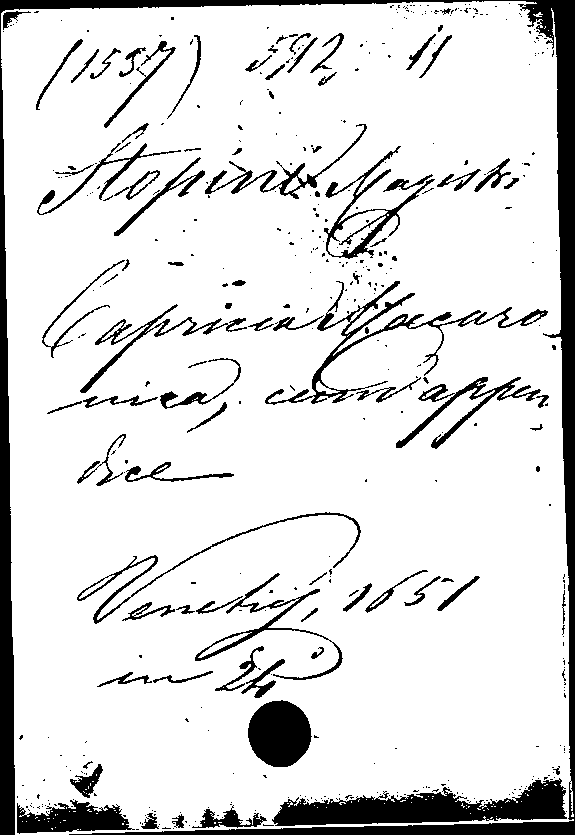 (1537) 592, 11
Stopini Magistri
Capricia Macaro-
nica, cum appen-
dice
Venetiis, 1651
in 24°